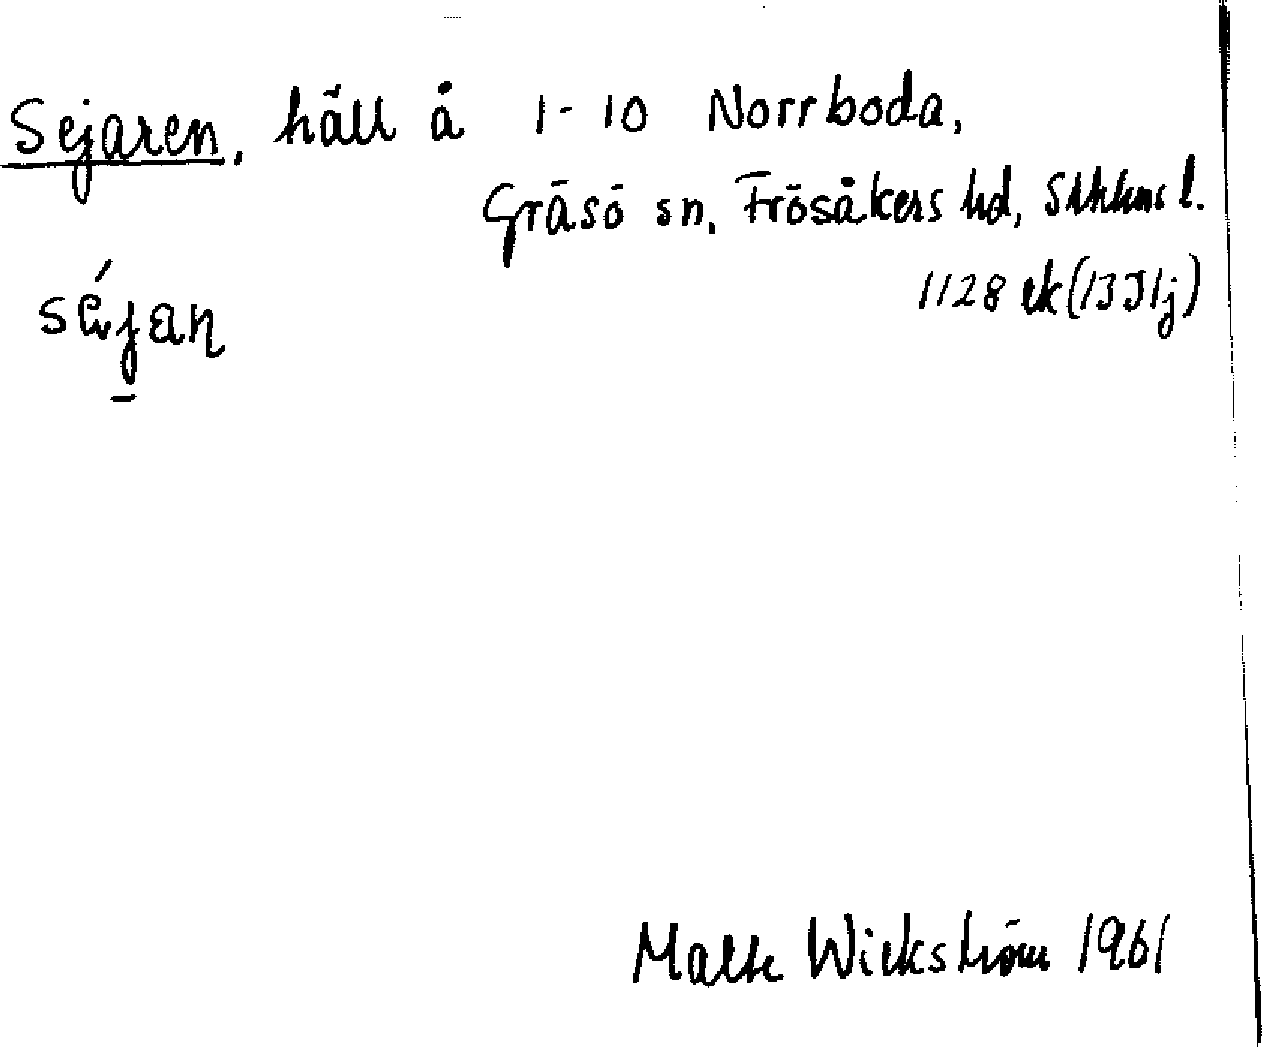 Sejaren, häll å 1-10 Norrboda,
Gräsö sn, Frösåkers hd, Sthlms l.
1128 ek (13 I 1j)
séjan
Malte Wickström 1961